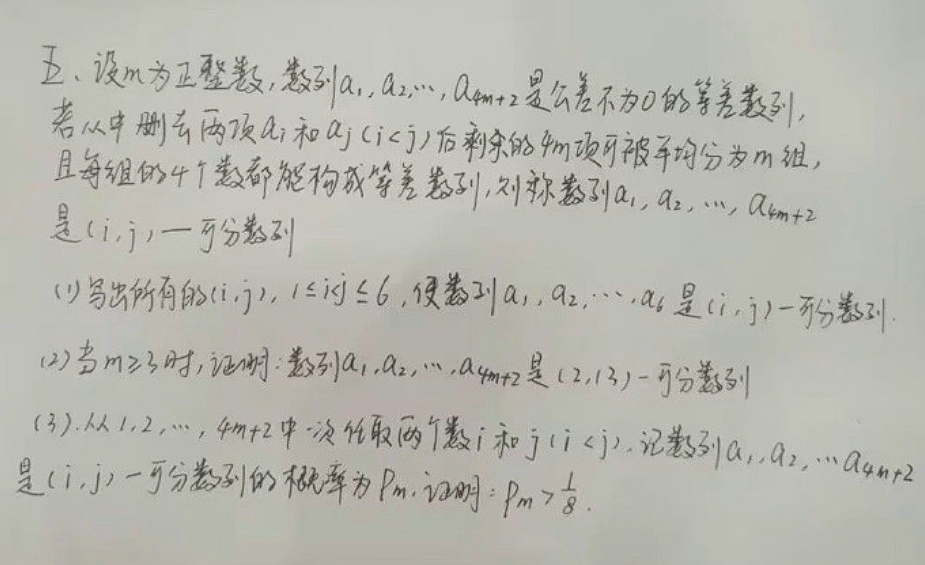 五、设m为正整数,数列a₁,a₂,…,a₄ₘ₊₂是公差不为0的等差数列,
若从中删去两项aᵢ和aⱼ(i<j)后剩余的4m项可被平均分为m组,
且每组的4个数都能构成等差数列,则称数列a₁,a₂,…,a₄ₘ₊₂
是(i,j)—可分数列
(1)写出所有的(i,j),1≤i<j≤6,使数列a₁,a₂,…,a₆是(i,j)—可分数列.
(2)当m≥3时,证明:数列a₁,a₂,…,a₄ₘ₊₂是(2,13)—可分数列
(3).从1,2,…,4m+2中一次任取两个数i和j(i<j).记数列a₁,a₂,…a₄ₘ₊₂
是(i,j)—可分数列的概率为Pₘ.证明:Pₘ>1/8.